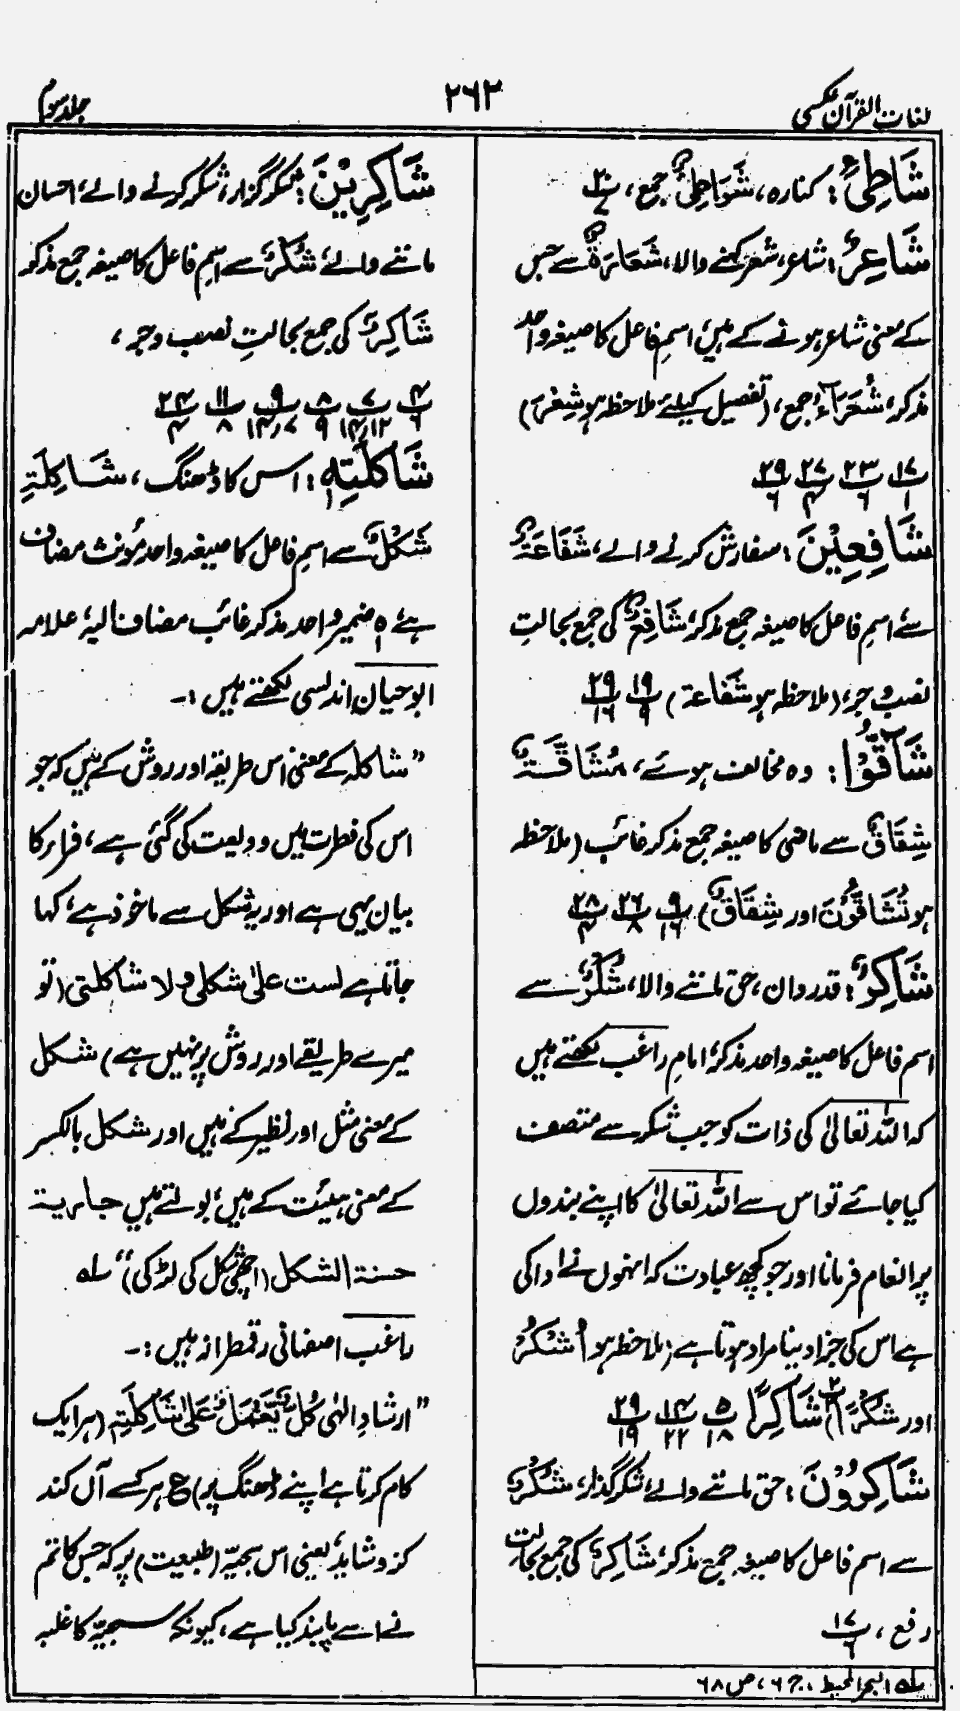 لغات القرآن عکسی
۲۶۳
جلد سوم
شَاطِیُٔ: کنارہ، شَوَاطِیُٔ جمع، ۲۰/۷
شَاعِرٌ: شاعر، شعر کہنے والا، شَعَارَۃٌ سے جس
کے معنی شاعر ہونے کے ہیں، اسم فاعل کا صیغہ واحد
مذکر، شُعَرَآءُ جمع، (تفصیل کیلئے ملاحظہ ہو شِعْرَ)
۱۷/۱ ۲۳/۶ ۲۷/۴ ۲۹/۶
شَافِعِیْنَ: سفارش کرنے والے، شَفَاعَۃٌ
سے اسمِ فاعل کا صیغہ جمع مذکر، شَافِعٌ کی جمع بحالتِ
نصب و جر، (ملاحظہ ہو شَفَاعۃ) ۱۹/۹ ۲۹/۱۶
شَآقُّوْا: وہ مخالف ہوئے، مُشَاقَّۃٌ
شِقَاقٌ سے ماضی کا صیغہ جمع مذکر غائب (ملاحظہ
ہو تُشَاقُّوْنَ اور شِقَاقٌ) ۹/۱۶ ۲۶/۸ ۲۸/۴
شَاکِرٌ: قدردان، حق ماننے والا، شُکْرٌ سے
اسم فاعل کا صیغہ واحد مذکر، امامِ راغب لکھتے ہیں
کہ اللہ تعالیٰ کی ذات کو جب شکر سے متصف
کیا جائے تو اس سے اللہ تعالیٰ کا اپنے بندوں
پر انعام فرمانا اور جو کچھ عبادت کہ انہوں نے ادا کی
ہے اس کی جزا دینا مراد ہوتا ہے (ملاحظہ ہو اُشْکُرْ
اور شُکْرًا) شَاکِرًا ۲/۳ ۵/۱۸ ۱۴/۲۲ ۲۹/۱۹
شَاکِرُوْنَ: حق ماننے والے، شکر گذار، شُکْرٌ
سے اسم فاعل کا صیغہ جمع مذکر، شَاکِرٌ کی جمع بحالت
رفع، ۱۷/۶
لہ البحر المحیط، ج ۶، ص ۶۸
شَاکِرِیْنَ: شکر گزار، شکر کرنے والے، احسان
ماننے والے، شُکْرٌ سے اسم فاعل کا صیغہ جمع مذکر
شَاکِرٌ کی جمع بحالتِ نصب و جر،
۴/۶ ۷/۱۴،۱۲ ۸/۹ ۹/۱۴،۷ ۱۱/۸ ۲۴/۴
شَاکِلَتِہٖ: اس کا ڈھنگ، شَاکِلَۃِ
شَکْلٌ سے اسمِ فاعل کا صیغہ واحد مؤنث مضاف
ہے، ہٖ ضمیر واحد مذکر غائب مضاف الیہ، علامہ
ابو حیان اندلسی لکھتے ہیں :۔
”شاکلہ کے معنی اس طریقہ اور روش کے ہیں کہ جو
اس کی فطرت میں ودیعت کی گئی ہے، فرار کا
بیان یہی ہے اور یہ شکل سے ماخوذ ہے، کہا
جاتا ہے لست علیٰ شکلی ولا شاکلتی (تو
میرے طریقے اور روش پر نہیں ہے) شکل
کے معنی مثل اور نظیر کے ہیں اور شکل بالکسر
کے معنی ہیئت کے ہیں، بولتے ہیں جاریۃ
حسنۃ الشکل (اچھی شکل کی لڑکی)“ لہ
راغب اصفہانی رقمطراز ہیں :۔
”ارشادِ الٰہی کُلٌّ یَّعْمَلُ عَلٰی شَاکِلَتِہٖ (ہر ایک
کام کرتا ہے اپنے ڈھنگ پر) ع ہر کسے آں کند
کزو شاید، یعنی اس سجیّہ (طبیعت) پر کہ جس کا تم
نے اسے پابند کیا ہے، کیونکہ سجیّہ کا غلبہ